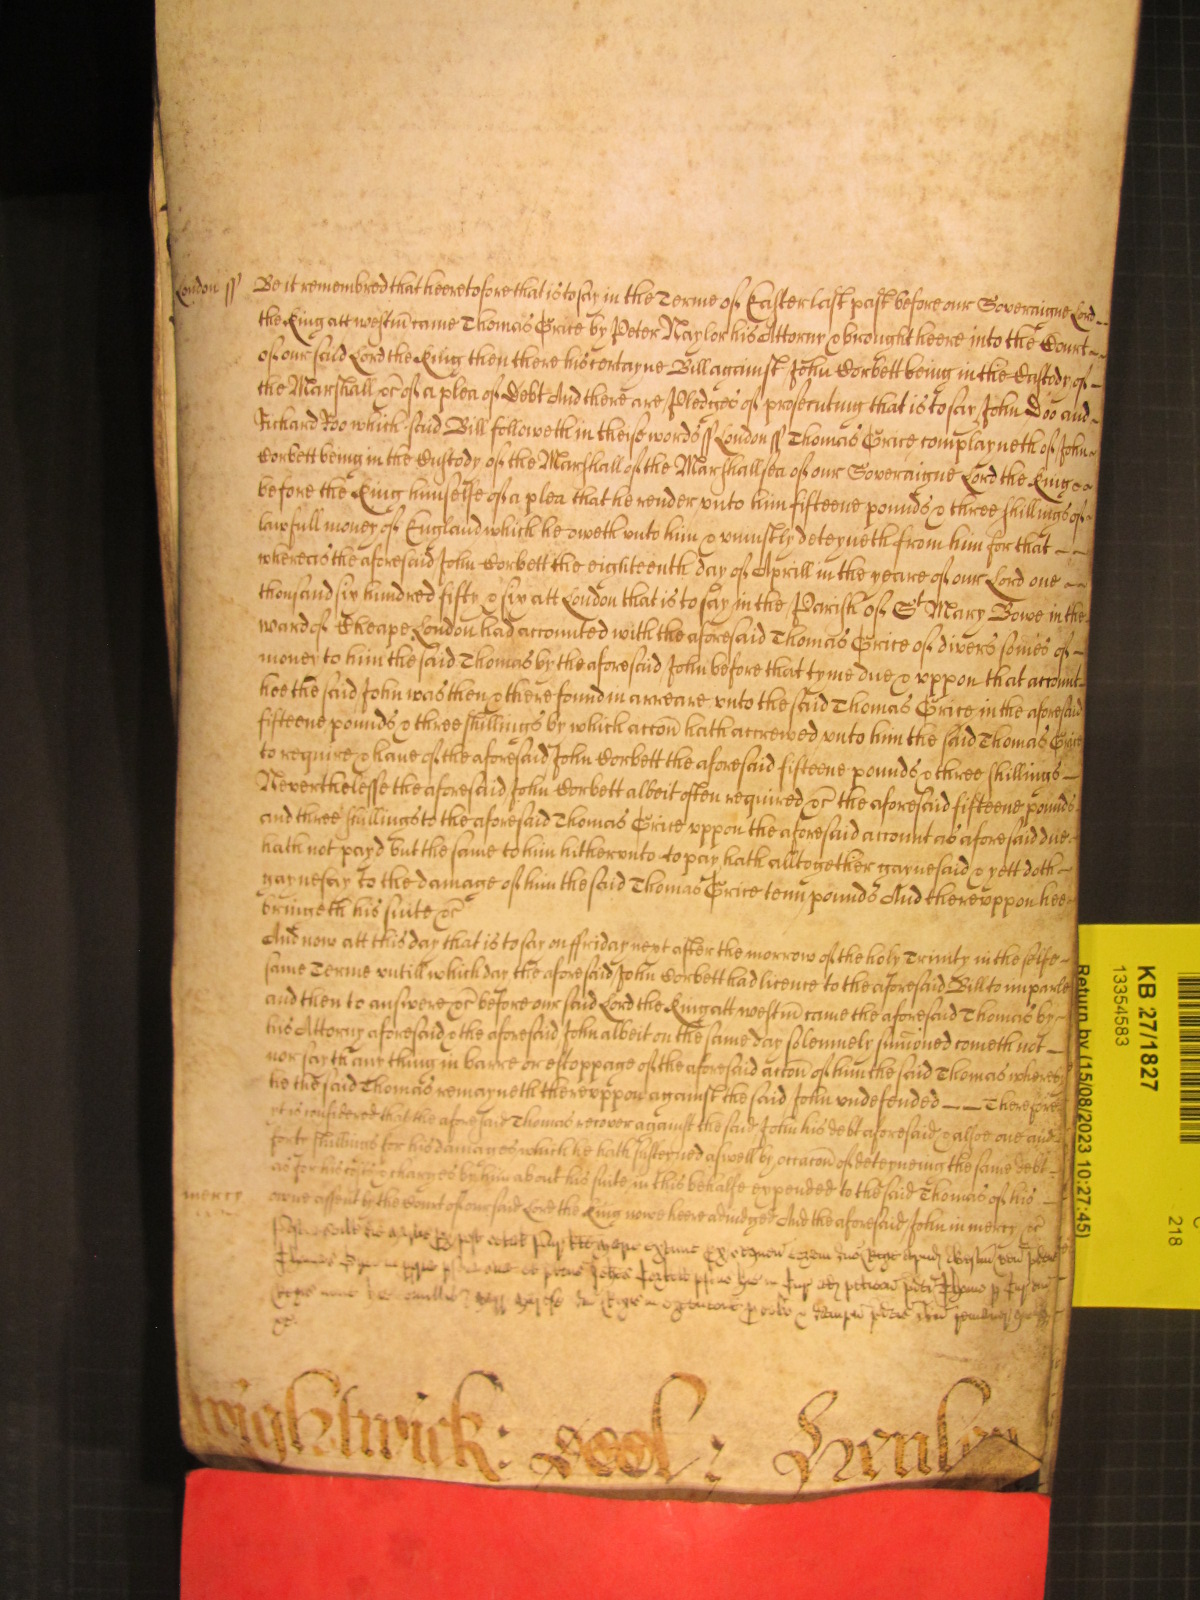 London ss Be it remembred that heeretofore that is to say in the Terme of Easter last past before our Soveraigne Lord
the King att westm̄ came Thomas Grice by Peter Naylor his Attorny & brought heere into the Court
of our said Lord the King then there his certayne Bill against John Corbett being in the Custody of
the Marshall &c of a plea of Debt And there are Pledges of prosecuting that is to say John Doo and
Richard Roo which said Bill followeth in theise words ss London ss Thomas Grice complayneth of John
Corbett being in the Custody of the Marshall of the Marshallsea of our Soveraigne Lord the King
before the King himselfe of a plea that he render unto him fifteene pounds & three shillings of
lawfull money of England which he oweth unto him & uniustly deteyneth from him for that
whereas the aforesaid John Corbett the eighteenth day of Aprill in the yeare of our Lord one
thousand six hundred fifty & six att London that is to say in the Parish of St Mary Bowe in the
ward of Cheape London had accounted with the aforesaid Thomas Grice of divers som̄es of
money to him the said Thomas by the aforesaid John before that tyme due & uppon that account
hee the said John was then & there found in arreare unto the said Thomas Grice in the aforesaid
fifteene pounds & three shillings by which acc̄on hath accrewed unto him the said Thomas Grice
to require & haue of the aforesaid John Corbett the aforesaid fifteene pounds & three shillings
Neverthelesse the aforesaid John Corbett albeit often required &c the aforesaid fifteene pounds
and three shillings to the aforesaid Thomas Grice uppon the aforesaid account as aforesaid due
hath not payd but the same to him hitherunto to pay hath alltogether gaynesaid & yett doth
gaynesay to the damage of him the said Thomas Grice tenn pounds And thereuppon hee
bringeth his suite &c
And now att this day that is to say on ffriday next after the morrow of the holy Trinity in the selfe
same Terme untill which day the aforesaid John Corbett had licence to the aforesaid Bill to imparle
and then to answere &c before our said Lord the King att westm̄ came the aforesaid Thomas by
his Attorny aforesaid & the aforesaid John albeit on the same day solemnely sum̄oned cometh not
nor sayth any thing in barre or estoppage of the aforesaid acc̄on of him the said Thomas whereby
he the said Thomas remayneth thereuppon against the said John undefended Therefore
yt is considered that the aforesaid Thomas recover against the said John his debt aforesaid & alsoe one and
forty shillings for his damages which he hath susteyned aswell by occac̄on of deteyneing the same debt
as for his costs & charges by him about his suite in this behalfe expended to the said Thomas of his
mercy owne assent by the Court of our said Lord the King nowe heere adiudged And the aforesaid John in mercy &c
&c
wightwick: Henley
KB 27/1827
13354583
Return by (15/08/2023 10:27:45)
218